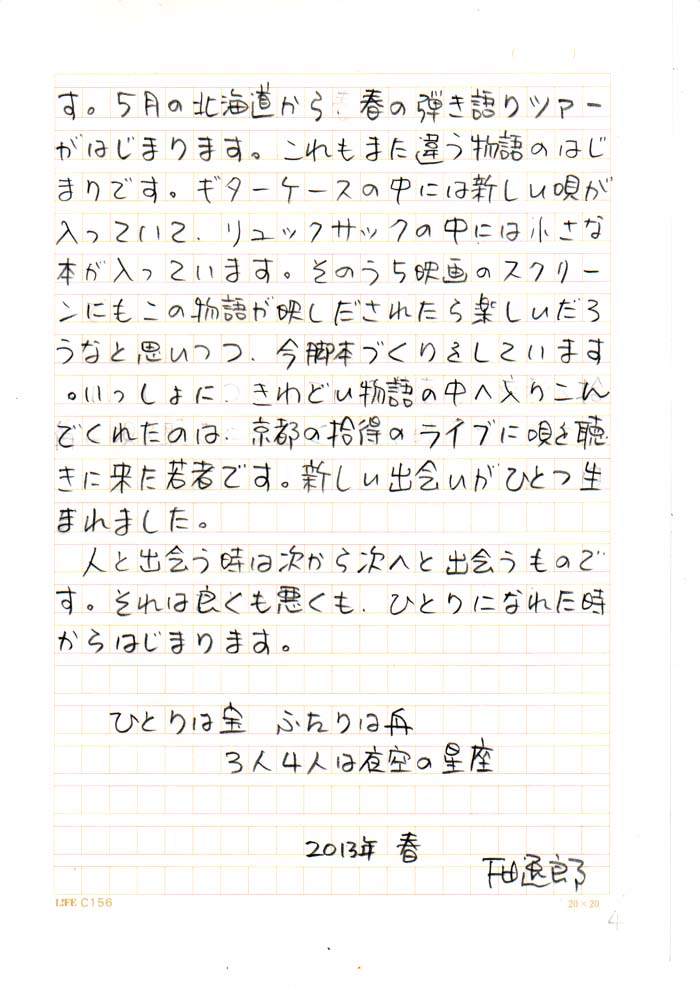 す。5月の北海道から、春の弾き語りツアー
がはじまります。これもまた違う物語のはじ
まりです。ギターケースの中には新しい唄が
入っていて、リュックサックの中には小さな
本が入っています。そのうち映画のスクリー
ンにもこの物語が映しだされたら楽しいだろ
うなと思いつつ、今脚本づくりをしています
。いっしょに、きわどい物語の中へ入りこん
でくれたのは、京都の拾得のライブに唄を聴
きに来た若者です。新しい出会いがひとつ生
まれました。
人と出会う時は次から次へと出会うもので
す。それは良くも悪くも、ひとりになれた時
からはじまります。
ひとりは宝 ふたりは舟
3人4人は夜空の星座
2013年 春
下田逸郎
LIFE C156
20×20
4